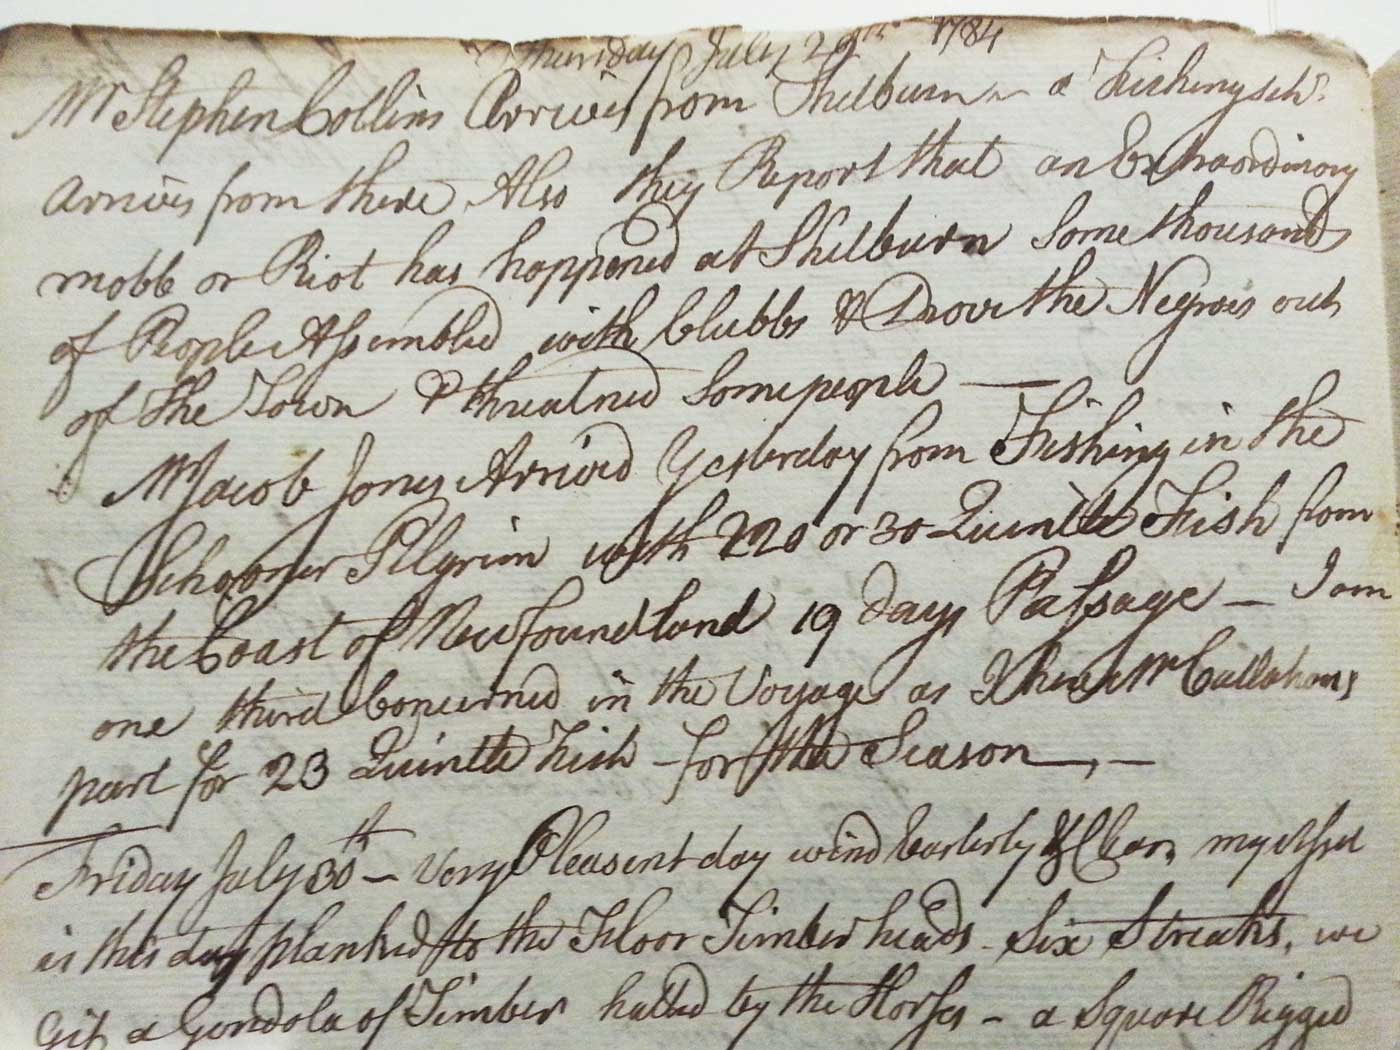 Thursday July 29th 1784
Mr Stephen Collins Arrives from Shelburn - a Fishing schr
arrives from there, Also they Report that an Extraordinary
mobb or Riot has happened at Shelburn Some thousands
of People Assembled with Clubbs & Drove the Negroes out
of the Town & threatned Some people —
Mr Jacob Jones Arrived Yesterday from Fishing in the
Schooner Pilgrim with 220 or 30 Quintle Fish from
the Coast of Newfoundland 19 days Passage — I am
one third Concerned in the Voyage as I hire Mr Callahans
part for 23 Quintle Fish - for the Season —, —
Friday July 30th – Very Pleasent day wind Easterly & Clear, my
is this day planked to the Floor Timber heads - Six Streaks, we
Git a Gondola of Timber halled by the Horses – a Square Rigged